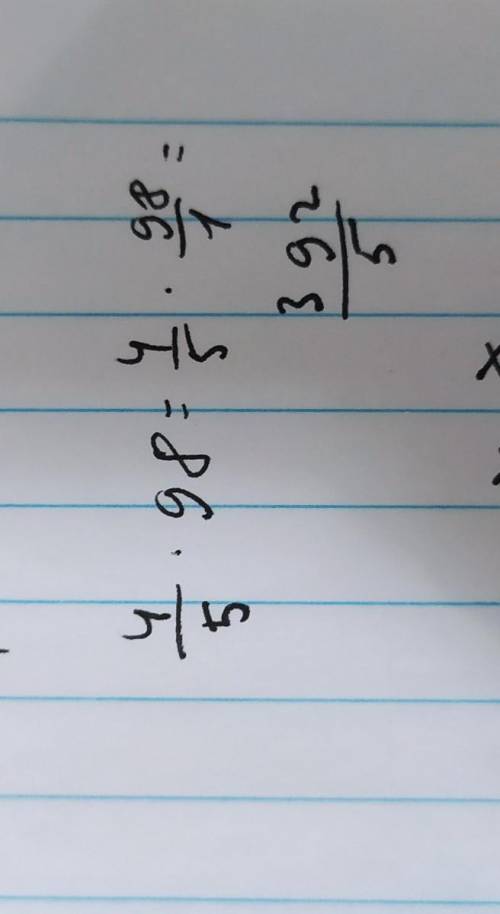 4/5 · 98 = 4/5 · 98/1 =
392/5